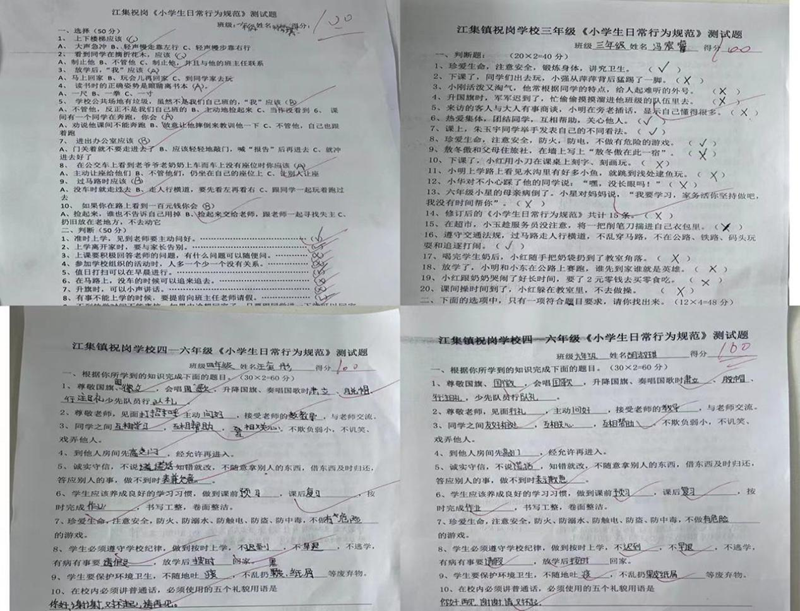 江集祝岗《小学生日常行为规范》测试题
班级：
姓名
得分：
100
一、选择（50 分）
1、上下楼梯，应该（
A、大声急冲 B、轻声慢走靠左行 C、轻声慢步靠右行
2、看到同学在摘折花木，应该（
A、制止他 B、不管他 C、制止他，并且与他的班主任联系
3、放学后，"我"应该（A）
A、马上回家 B、玩会儿再回家 C、到同学家去玩
4、读书时的正确姿势是眼睛离书本（A）
A、一尺 B、一拳 C、一寸
5、学校公共场地有垃圾，虽然不是我们自己班的，"我"应该（B）
间有一个同学在奔跑，你会（A）
A、劝说他课间不能奔跑 B、故意让他摔倒来教训他一下 C、不管他，自己也跟
着跑
7、进出办公室应该（B）
A、门关着就不要走进去了 B、应该轻轻地敲门，喊"报告"后再进去 C、就冲
进去好了
8、在公交车上看到老爷爷老奶奶上车而车上没有座位时你应该（A）
A、主动让座给他们 B、不管他们，仍坐在自己的座位上 C、让别人让座
9、过马路时应该（B）
A、没车时就走过去 B、走人行横道，要先看左再看右 C、跟同学一起玩着跑过
去
10、如果你在路上看到一百元钱你会（B）
A、捡起来，谁也不告诉自己用掉 B、捡起来交给老师，跟老师一起寻找失主 C、
仍旧放在老地方，不去动它
二、判断（50 分）
1、准时上学，见到老师要主动问好。
2、上学离家时，要与家长告别。
3、上课要积极回答老师的问题，有什么问题可以随便问。
4、参加学校组织的活动时，人多一个少一个没有关系。
5、值日打扫可以在早晨进行。
6、在马路上，没车的时候可以追来追去。
7、升旗时，可以小声讲话。
8、有事不能上学的时候，要提前向班主任老师请假。
江集镇祝岗学校三年级《小学生日常行为规范》测试题
班级 三年级 姓名 得分 100
一、判断题： （20×2=40 分）
1、珍爱生命，注意安全，锻炼身体，讲究卫生。（✓）
2、下课了，同学们出去玩，小强从萍萍背后猛踢了一脚。（×）
3、小刚活泼又淘气，他常根据同学的特点，给人起难听的外号。（×）
4、升国旗时，军军迟到了，忙偷偷摸摸溜进他班级的队伍里去。（×）
5、来访的客人与大人有事商谈，小明在旁老插话，显示自己懂得很多。（×）
6、热爱集体，团结同学，互相帮助，关心他人。（✓）
7、课上，朱玉宇同学举手发表自己的不同看法。（✓）
8、珍爱生命，注意安全，防火，防电，不做有危险的游戏。（✓）
9、敖冬傲和父母在旅社，在墙上写上"敖冬傲在此一宿"。（×）
10、下课了。小红用小刀在课桌上刻字、刻画玩。（×）
11、小明上学路上看见水沟里有好多小鱼，就跳到浅处逮鱼玩。（×）
12、小华对不小心踩了他的同学说："嘿，没长眼吗！"（×）
13、六年级小星的母亲病倒了。小星对妈妈说，"我要学习，家务活你坚持做吧，
我没有时间帮你"。（×）
14、修订后的《小学生日常行为规范》共计 15 条。（×）
15、在超市，小玉趁服务员没注意，将一把削笔刀揣进自己衣包里。（×）
16、遵守交通法规，过马路走人行横道，不乱穿马路，不在公路、铁路、码头玩
耍和追逐打闹。（✓）
17、喝完学生奶后，小红随手把奶袋扔到了教室角落。（×）
18、放学了。小明和小东在公路上赛跑，谁先到家谁就是英雄。（×）
19、小红跟奶奶哭闹了好长时间，要了 2 元零钱去买零食吃。（×）
20、课间操时间到了，小红躲在教室里，不去做操。（×）
二、下面的选项中，只有一项符合题目要求，请你找出来。（12×4=48 分）
江集镇祝岗学校四—六年级《小学生日常行为规范》测试题
班级 四年级 姓名 得分 100
一、根据你所学到的知识完成下面的题目。（30×2=60 分）
1、尊敬国旗、国徽，会唱国歌，升降国旗、奏唱国歌时肃立、脱帽、
行注目礼，少先队员行队礼。
2、尊敬老师，见面打招呼，主动问好，接受老师的教导，与老师交流。
3、同学之间互相学习、互相帮助、互相关心，不欺负弱小，不讥笑、
戏弄他人。
4、到他人房间先敲门，经允许再进入。
5、诚实守信，不说谎话，知错就改，不随意拿别人的东西，借东西及时归还，
答应别人的事，做不到时表示歉意。
6、学生应该养成良好的学习习惯，做到课前预习，课后复习，按
时完成作业，书写工整，卷面整洁。
7、珍爱生命，注意安全，防火、防溺水、防触电、防盗、防中毒，不做有危险
的游戏。
8、学生必须遵守学校纪律，做到按时上学，不迟到，不早退，不逃学，
有病有事要请假，放学后按时回家。
9、学生要保护环境卫生，不随地吐痰，不乱扔果皮纸屑等废弃物。
10、在校内必须讲普通话，必须使用的五个礼貌用语是
你好、谢谢、对不起、请、再见。
江集镇祝岗学校四—六年级《小学生日常行为规范》测试题
班级 六年级 姓名 得分 100
一、根据你所学到的知识完成下面的题目。（30×2=60 分）
1、尊敬国旗、国徽，会唱国歌，升降国旗、奏唱国歌时肃立、脱帽、
行注目礼，少先队员行队礼。
2、尊敬老师，见面行礼，主动问好，接受老师的教导，与老师交流。
3、同学之间友好相处，互相关心，互相帮助，不欺负弱小，不讥笑、
戏弄他人。
4、到他人房间先敲门，经允许再进入。
5、诚实守信，不说谎话，知错就改，不随意拿别人的东西，借东西及时归还，
答应别人的事，做不到时表示歉意。
6、学生应该养成良好的学习习惯，做到课前预习，课后复习，按
时完成作业，书写工整，卷面整洁。
7、珍爱生命，注意安全，防火、防溺水、防触电、防盗、防中毒，不做有危险
的游戏。
8、学生必须遵守学校纪律，做到按时上学，不迟到，不早退，不逃学，
有病有事要请假，放学后按时回家。
9、学生要保护环境卫生，不随地吐痰，不乱扔果皮纸屑等废弃物。
10、在校内必须讲普通话，必须使用的五个礼貌用语是